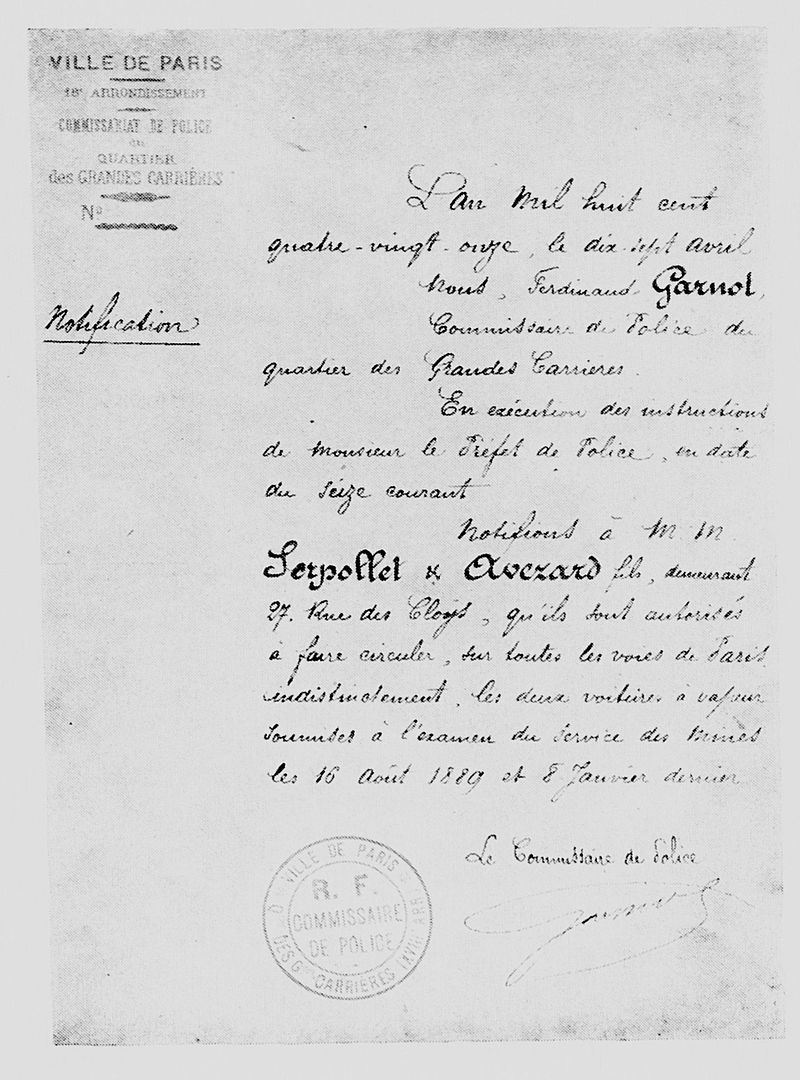 VILLE DE PARIS
18e ARRONDISSEMENT
COMMISSARIAT DE POLICE
DU
QUARTIER
des GRANDES CARRIÈRES
No
Notification
L'an mil huit cent
quatre-vingt-onze, le dix-sept avril
Nous, Ferdinand Garnot,
Commissaire de Police du
quartier des Grandes Carrieres.
En exécution des instructions
de Monsieur le Préfet de Police, en date
du seize courant
Notifions à M M
Serpollet & Avezard fils, demeurant
27, Rue des Cloÿs, qu'ils sont autorisés
à faire circuler, sur toutes les voies de Paris
indistinctement, les deux voitures à vapeur
soumises à l'examen du service des Mines
les 16 Août 1889 et 8 Janvier dernier
Le Commissaire de Police
VILLE DE PARIS
R. F.
COMMISSAIRE
DE POLICE
DES Gdes CARRIERES (XVIIIe ARR